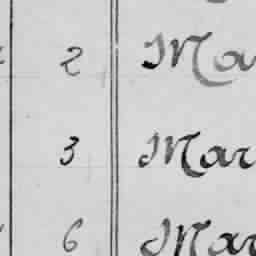 2 Ma
3 Mar
6 Mar